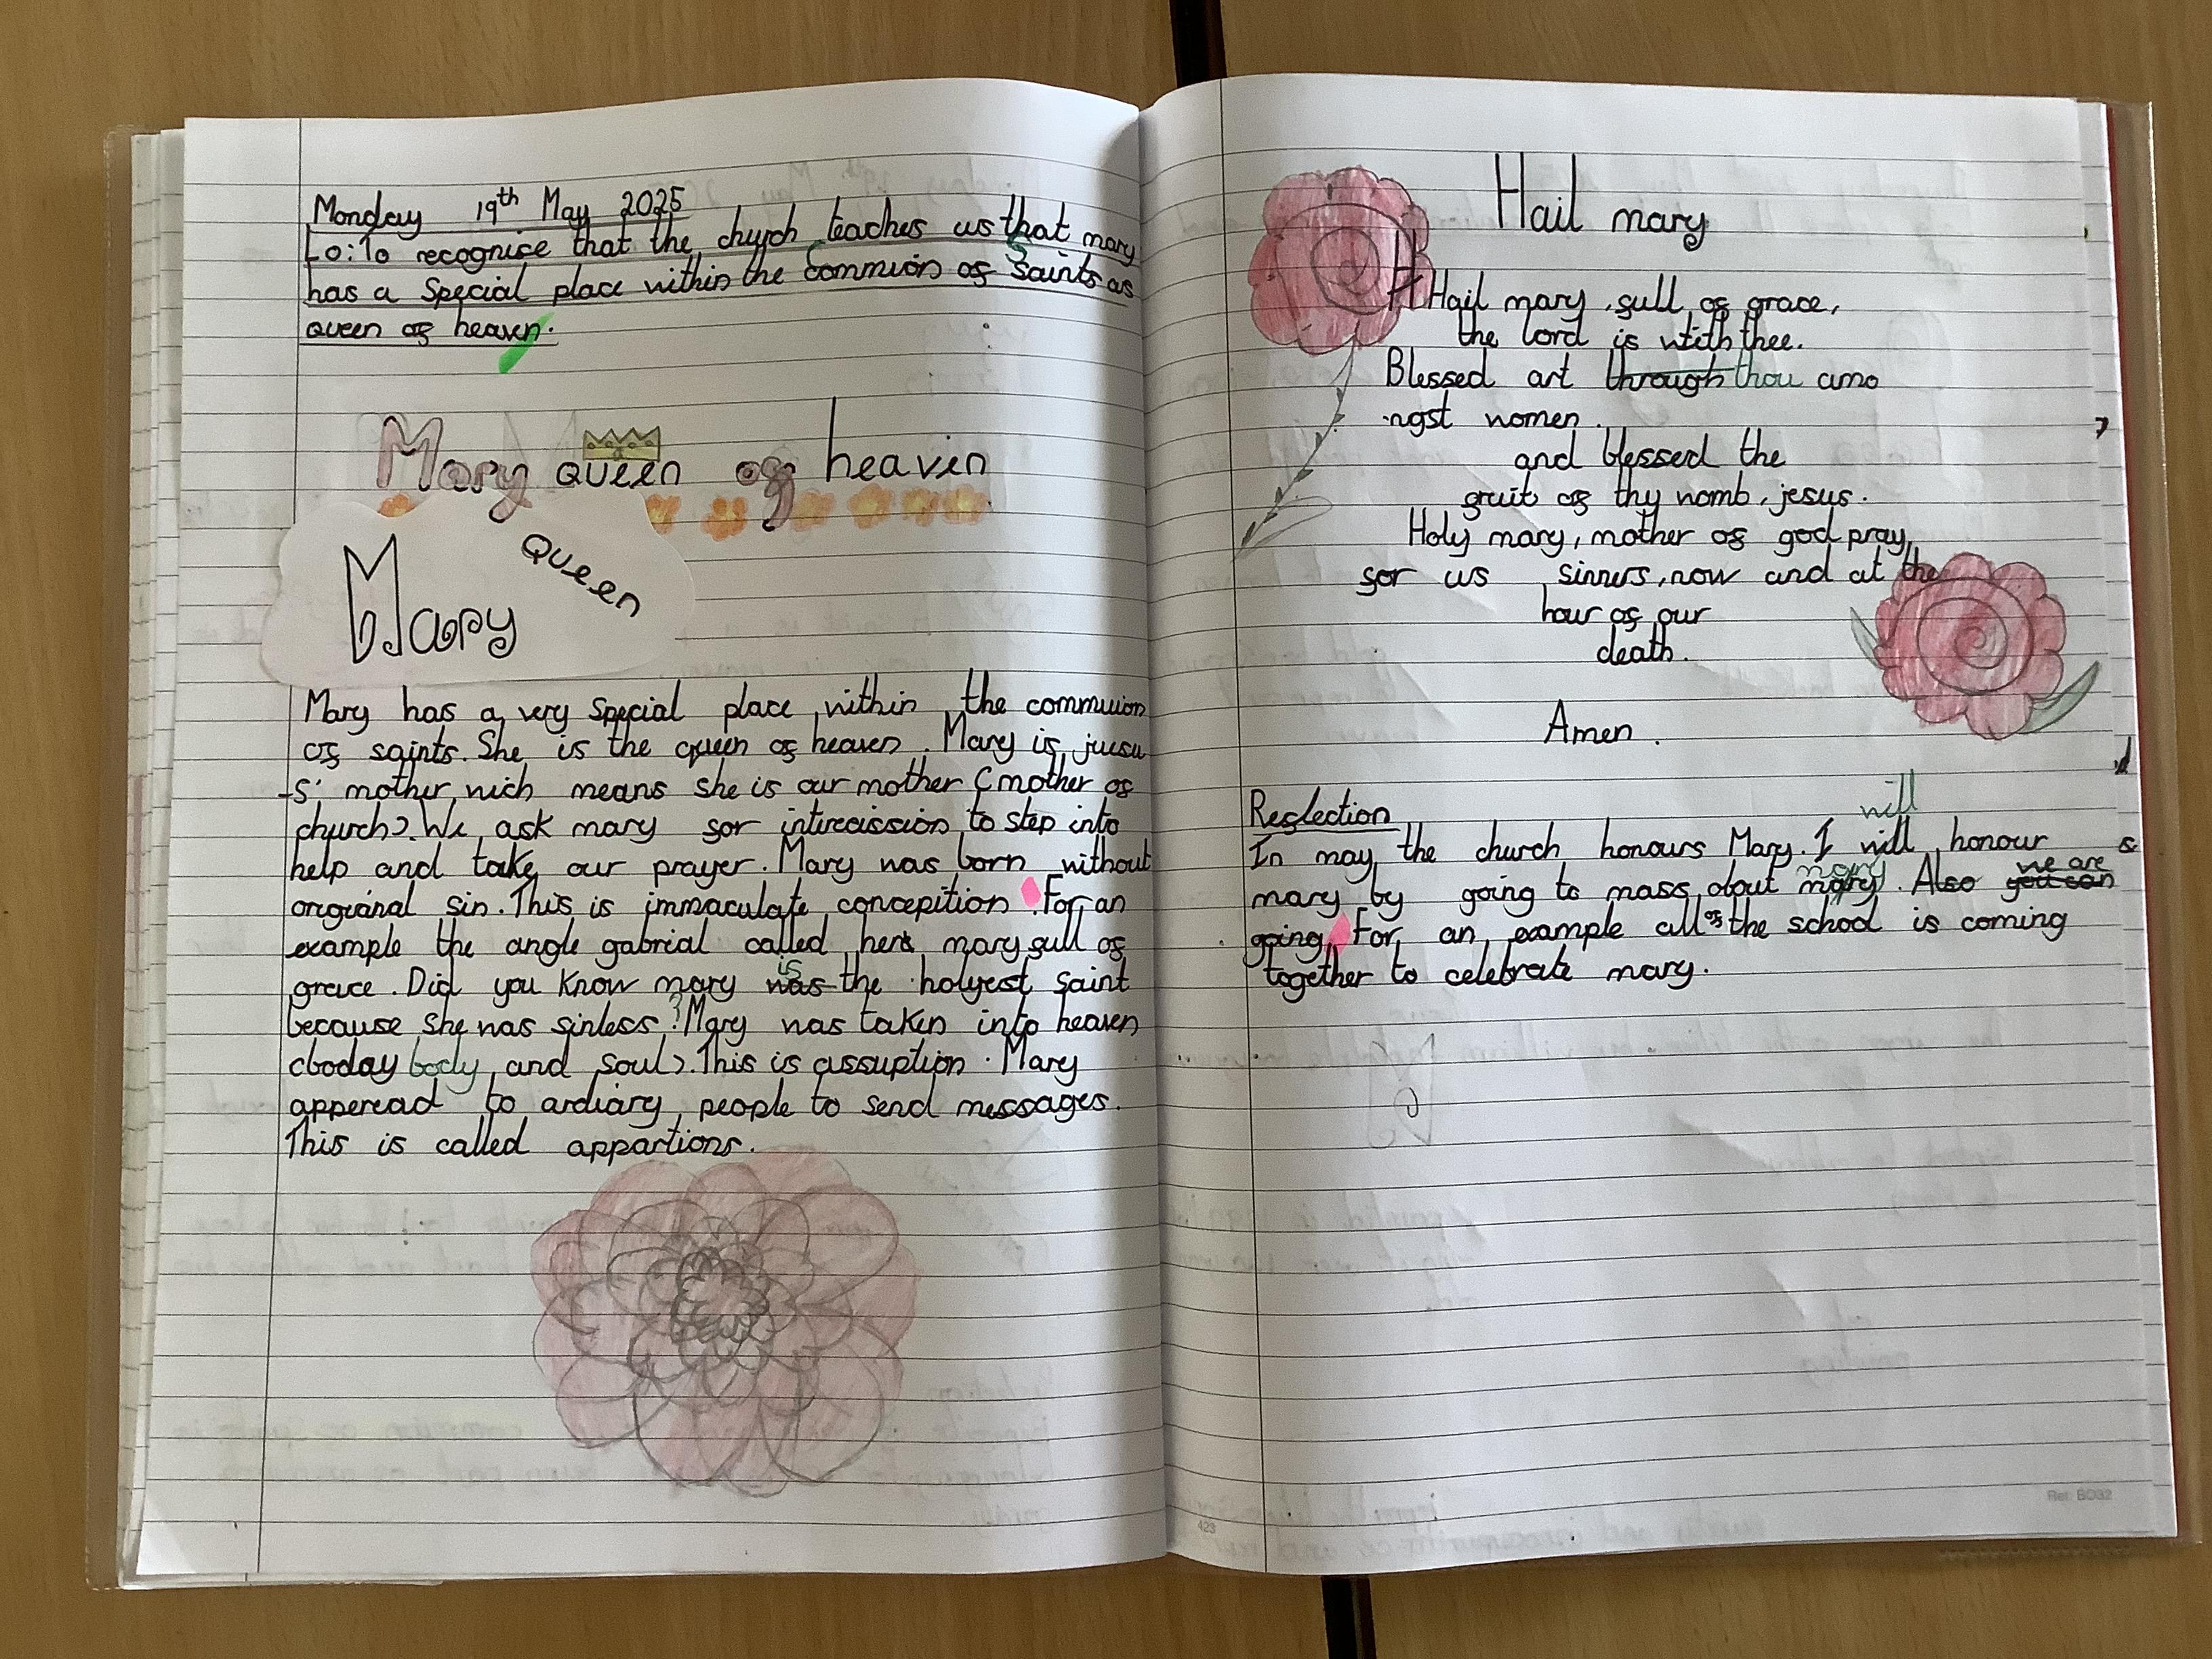 Monday 19th May 2025
Lo: To recognise that the church teaches us that mary
has a Special place within the Commuion of Saints as
queen of heaven.
Mary queen of heavin
Mary Queen
Mary has a very special place within the commuion
of saints. She is the queen of heaven. Mary is juesu
-s' mother, wich means she is our mother (mother of
church). We ask mary for intercission to step into
help and take our prayer. Mary was born without
origianal sin. This is immaculate concepition. For an
example the angle gabrial called here mary full of
grace. Did you know mary was is the holyest saint
because she was sinless? Mary was taken into heaven
(boday body and soul). This is assuption. Mary
apperead to ardiary people to send messages.
This is called appartions.
423
Hail mary
Hail mary, full of grace,
the lord is with thee.
Blessed art through thou amo
ngst women.
and blessed the
fruit of thy womb, jesus.
Holy mary, mother of god pray
for us sinners, now and at the
hour of our
death.
Amen.
Reflection
will
In may, the church honours Mary. I will honour
mary by going to mass about mary mary. Also you can we are
going. For an example all of the school is coming
together to celebrate mary.
Ref: BD32